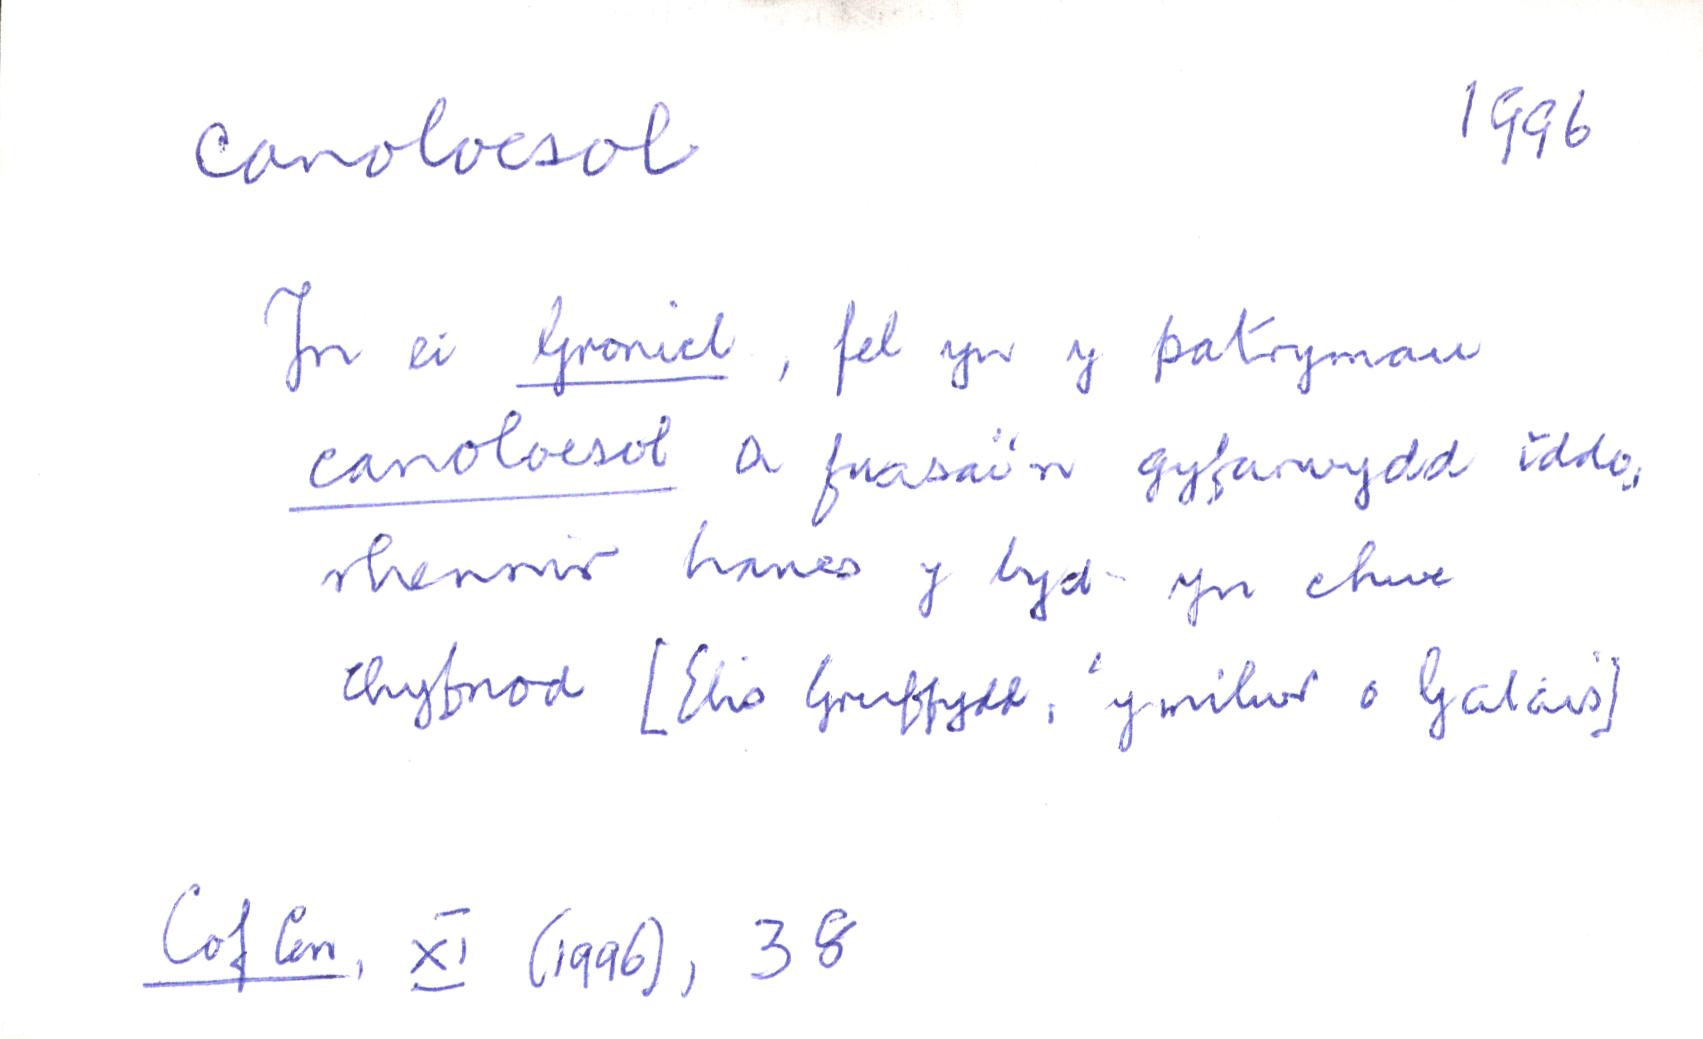 canoloesol 1996
Yn ei Gronicl, fel yn y patrymau
canoloesol a fuasai'n gyfarwydd iddo,
rhennir hanes y byd yn chwe
chyfnod [Elis Gruffydd, 'y milwr o Galais']
Cof Cen, XI (1996), 38